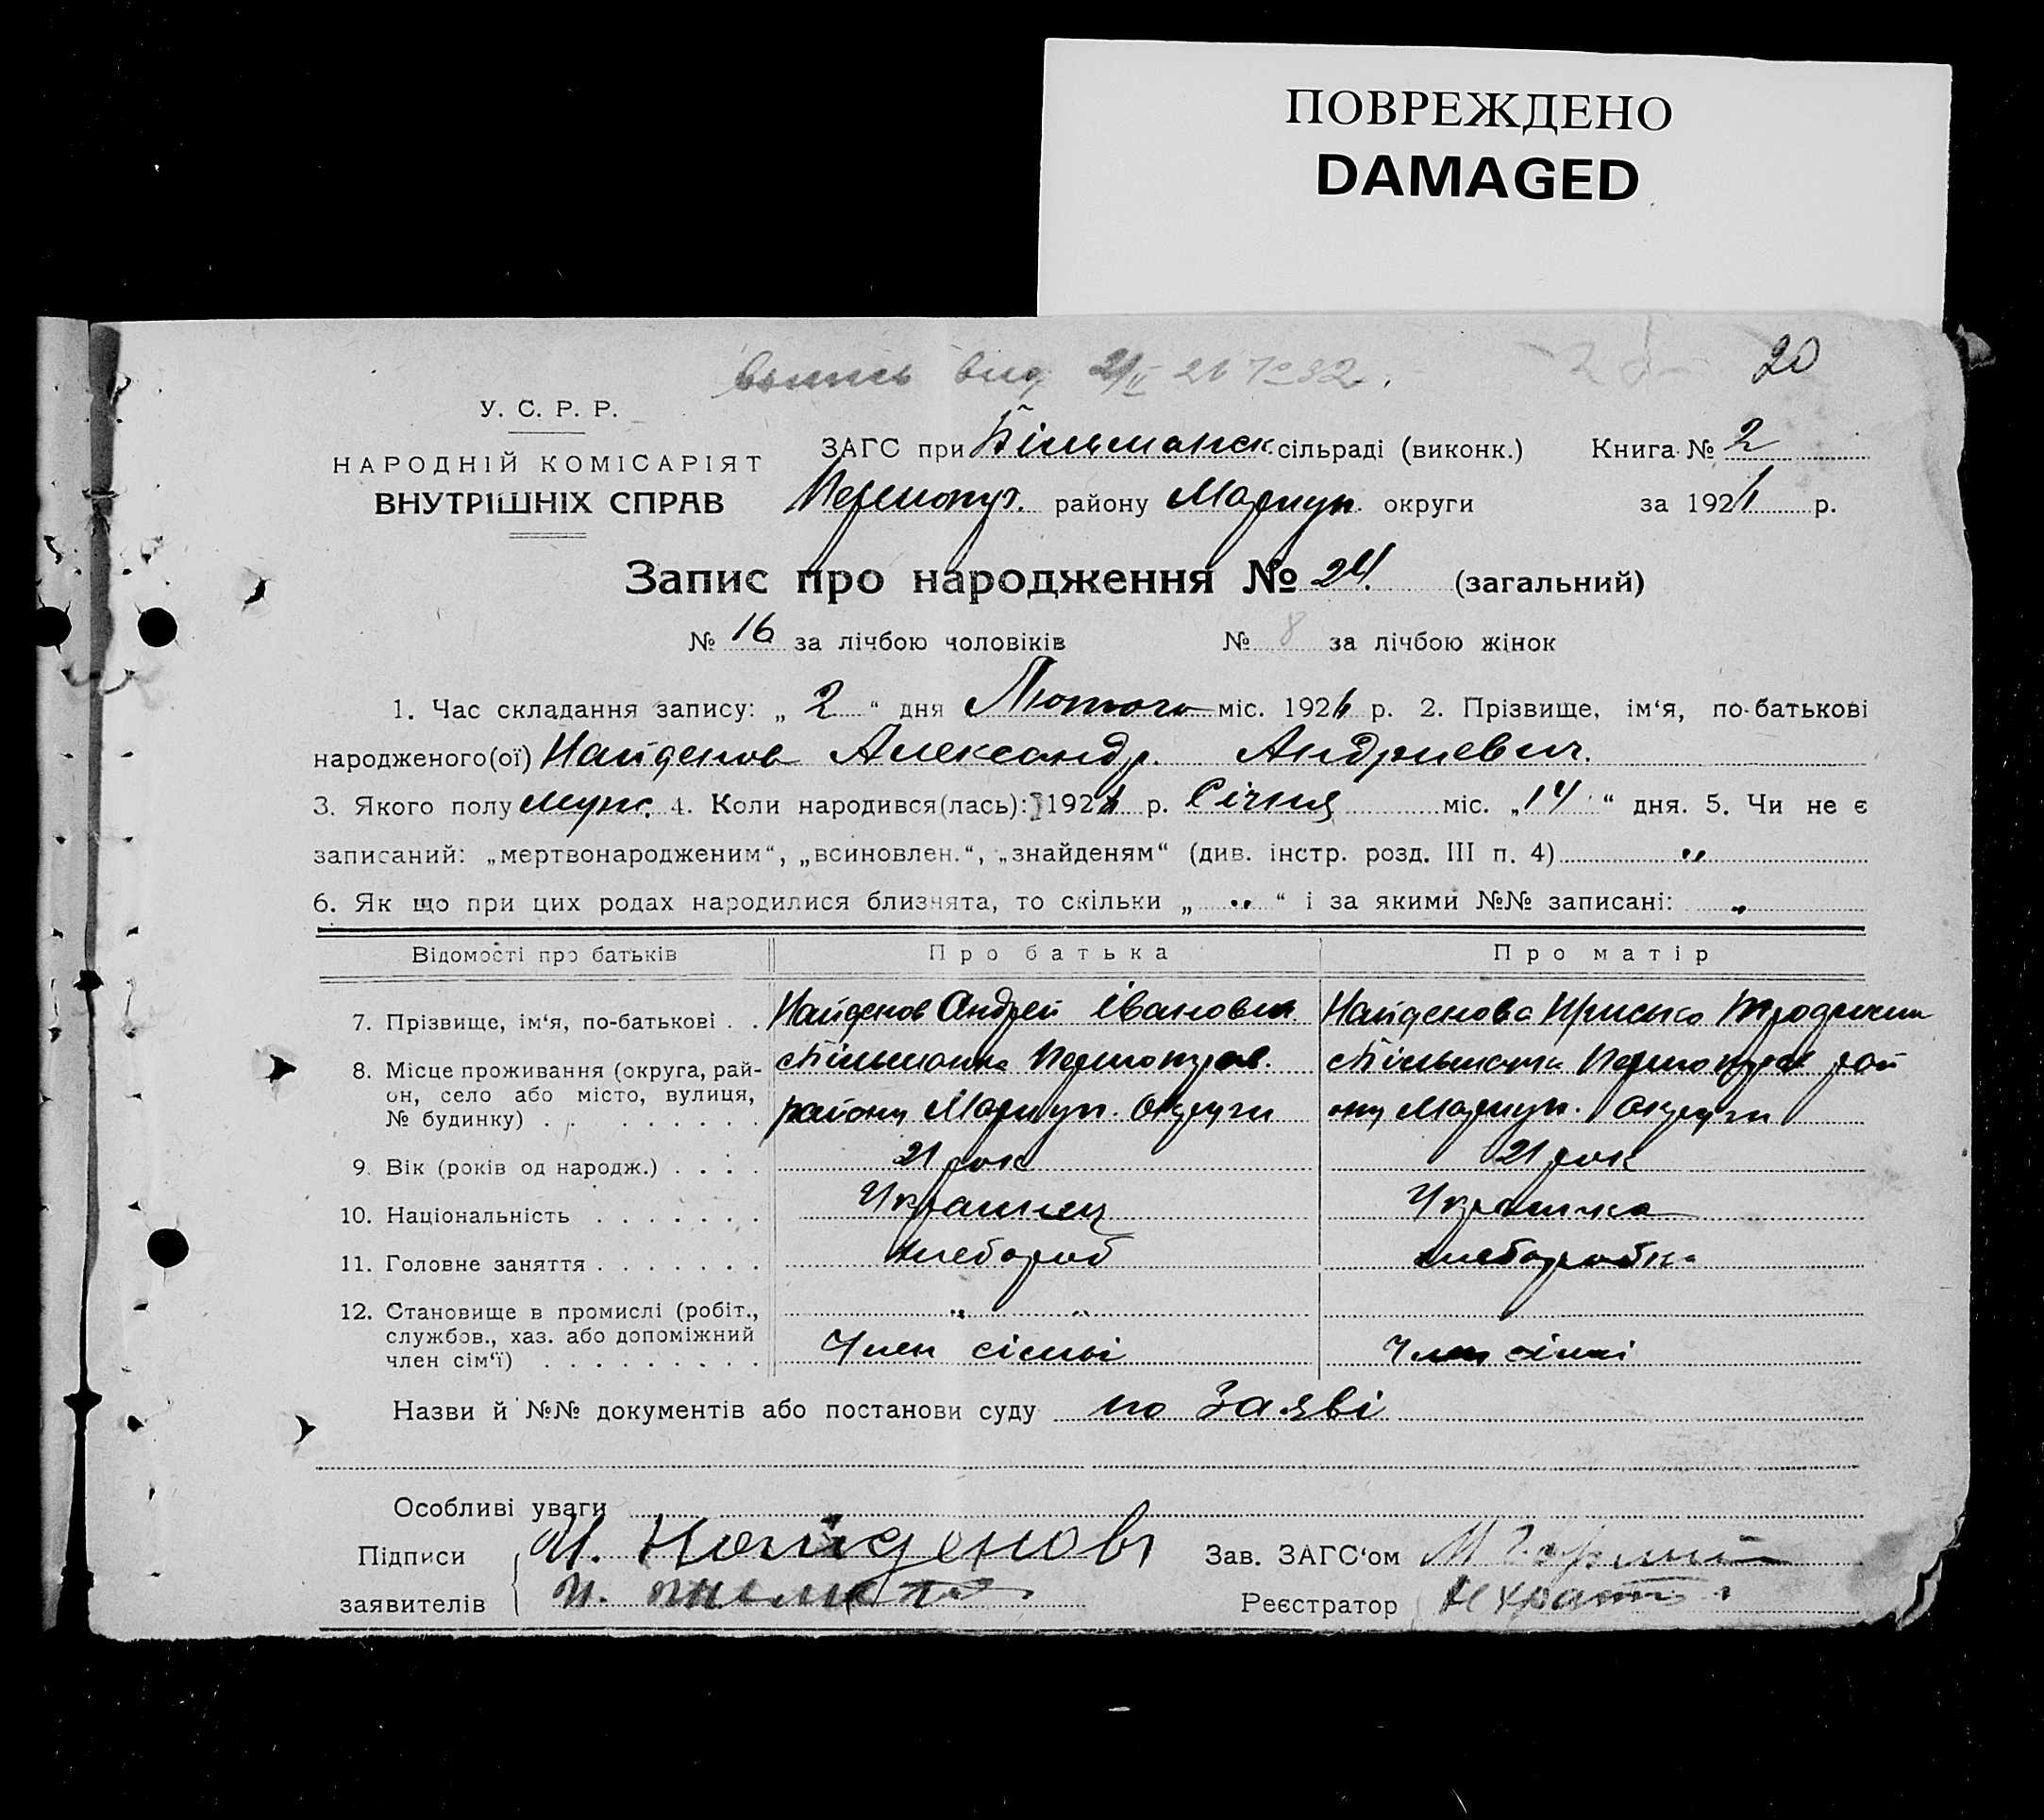 ПОВРЕЖДЕНО
DAMAGED
20
У. С. Р. Р.
НАРОДНІЙ КОМІСАРІЯТ
ВНУТРІШНІХ СПРАВ
ЗАГС при Більманск. сільраді (виконк.) Книга № 2
району Мариуп. округи за 192 р.
Запис про народження № 24 (загальний)
№ 16 за лічбою чоловіків № 8 за лічбою жінок
1. Час складання запису: „ 2 “ дня Лютого міс. 192 р. 2. Прізвище, ім‘я, по-батькові
народженого(ої) Найденов Александр Андриевич.
3. Якого полу муж. 4. Коли народився(лась): 192 р. Січня міс. „ 14 “ дня. 5. Чи не є
записаний: „мертвонародженим“, „всиновлен.“, „знайденям“ (див. інстр. розд. III п. 4) „
6. Як що при цих родах народилися близнята, то скільки „ „ “ і за якими №№ записані: „
Відомості про батьків Про батька Про матір
7. Прізвище, ім‘я, по-батькові . . Найденов Андрей Іванович Найденова Приська
8. Місце проживання (округа, рай-
он, село або місто, вулиця,
№ будинку) . . . . . . . . району Мариуп. Округи ону Мариуп. Округи
9. Вік (років од народж.) . . . . 21 рок 21 рок
10. Національність . . . . . . . Украинец Украинка
11. Головне заняття . . . . . . . хлебороб хлеборобка
12. Становище в промислі (робіт., „ „
службов., хаз. або допоміжний
член сім‘ї) . . . . . . . . . Член сімьі Член сімьі
Назви й №№ документів або постанови суду по Заяві
Особливі уваги
Підписи И. Найденов Зав. ЗАГС‘ом
заявителів Реєстратор